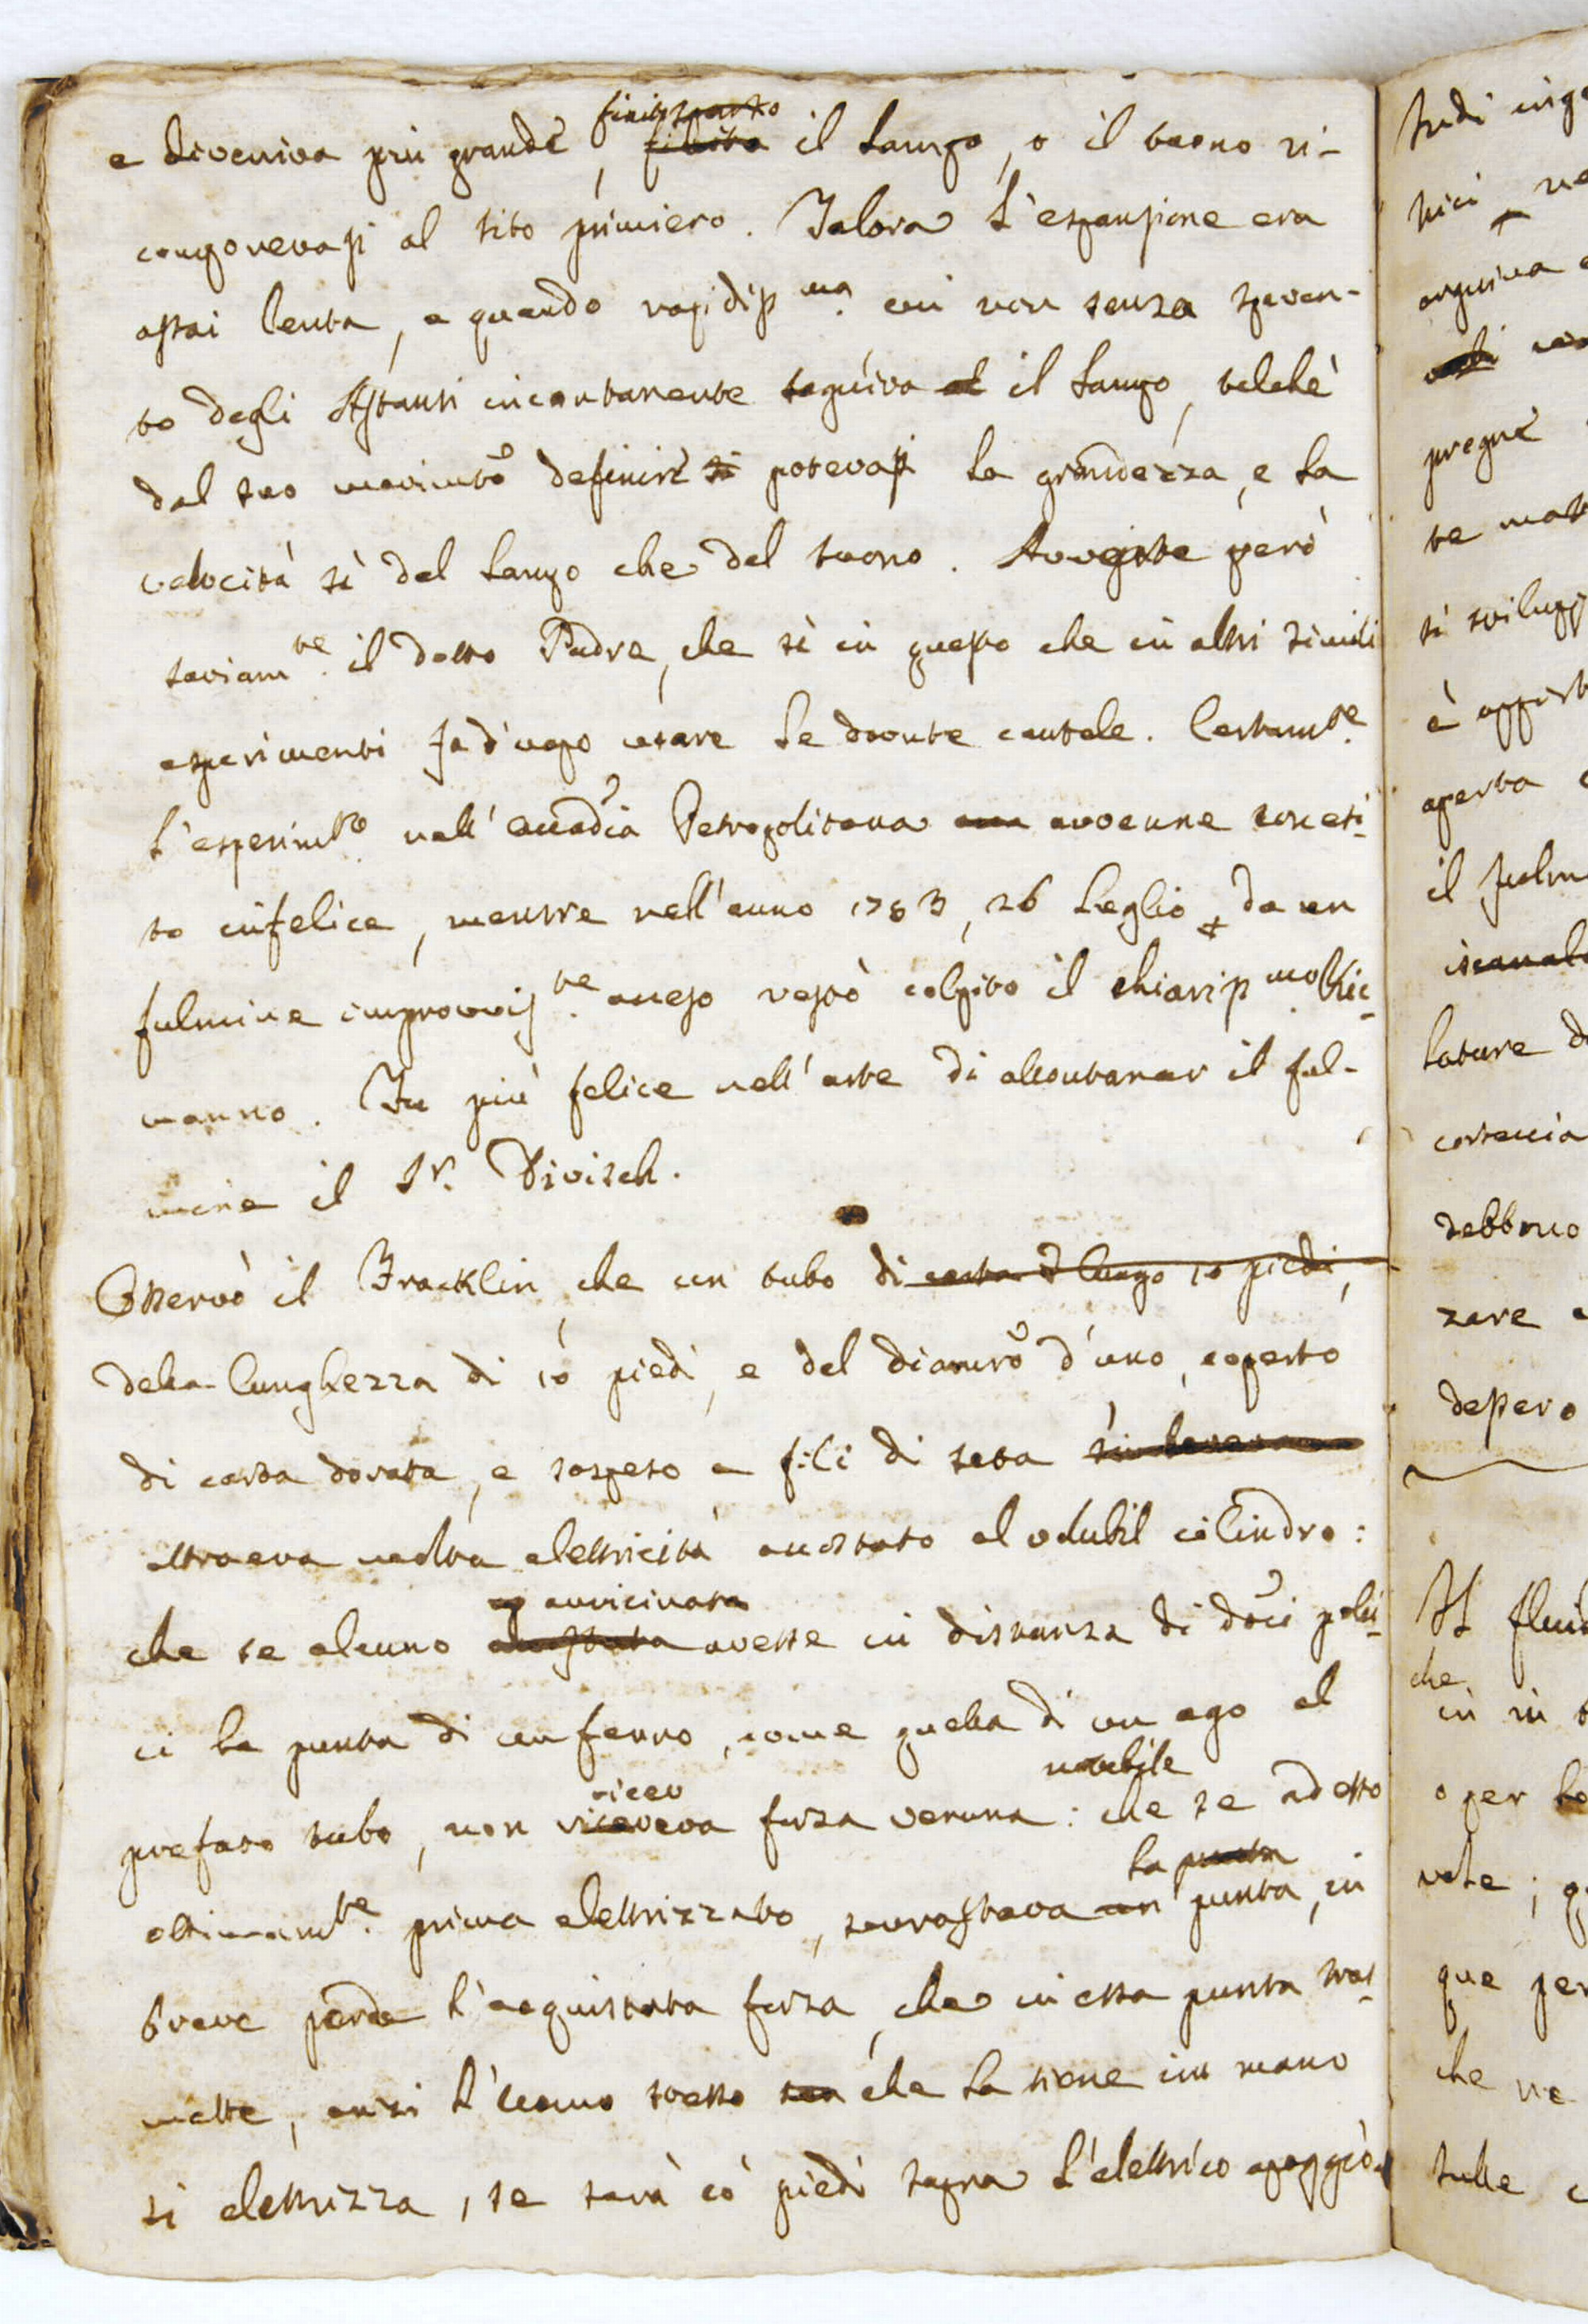 e diveniva più grande, finito il lampo, o il tuono ri-
componevasi al sito primiero. Talora l'espansione era
assai lenta, e quando rapidiss.ma cui non senza spaven-
to degli Astanti incontanente seguiva il lampo, talchè
dal suo movim.to definire si potevasi la grandezza, e la
velocità sì del lampo che del tuono. Avverte però
saviam.te il dotto Padre, che sì in questo che in altri simili
esperimenti fa d'uopo usare le dovute cautele. Certam.te
l'esperim.to nell'accadia Petropolitana avvenne
to infelice, mentre nell'anno 1753, 26 Luglio da un
fulmine improvvis.te acceso restò colpito il chiariss.mo Ric-
manno. Fu più felice nell'arte di allontanar il ful-
mine il Sr. Divisch.
Osservò il Fracklin, che un tubo di carta lungo 10 piedi,
della lunghezza di 10 piedi, e del diamro d'uno, coperto
di carta dorata, e sospeso a fili di seta
attraeva molta elettricità accostato al volubil cilindro:
avvicinata
che se alcuno accostata avesse in distanza di doci polli-
ci la punta di un ferro, come quella di un ago al
ricev
mobile
prefato tubo, non riceveva forza veruna: che se ad esso
la punta
ottimam.te prima elettrizzato, sovrastava un punta, in
breve perde l'acquistata forza, che in essa punta tras-
mette, anzi l'uomo stesso che la tiene in mano
si elettrizza, se sarà có piedi sopra l'elettrico appoggio
tudi
pregne
te
si svilupp
è
aperta
il fulm
lature d
corteccia
debbono
zare
Il fluid
che
in
o per
que per
che ne
sulle